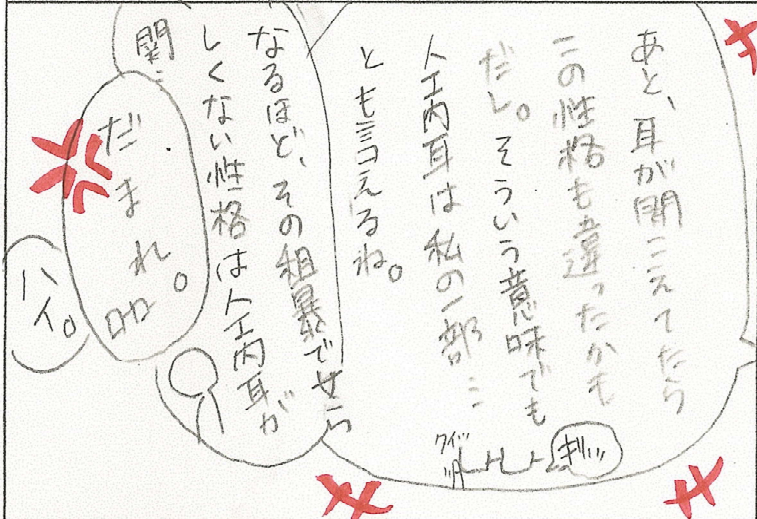 あと、耳が聞こえてたら
この性格も違ったかも
だし。そういう意味でも
人工内耳は私の一部…
とも言えるね。
なるほど、その粗暴で女ら
しくない性格は人工内耳が
関…
だまれ。
ハイ。